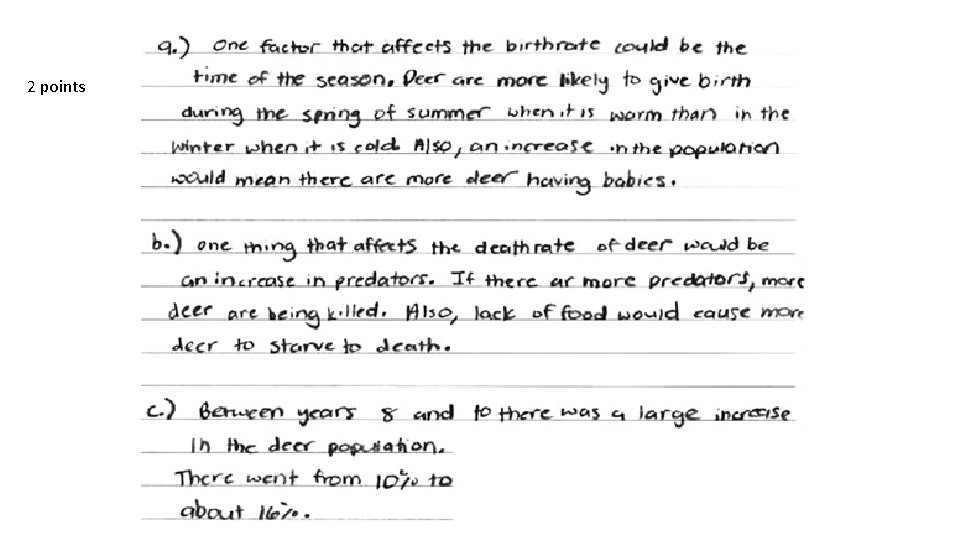 a.) One factor that affects the birthrate could be the
time of the season. Deer are more likely to give birth
2 points
during the spring of summer when it is warm than in the
winter when it is cold. Also, an increase in the population
would mean there are more deer having babies.
b.) one thing that affects the death rate of deer would be
an increase in predators. If there ar more predators, more
deer are being killed. Also, lack of food would cause more
deer to starve to death.
c.) Between years 8 and 10 there was a large increase
in the deer population.
There went from 10% to
about 16%.